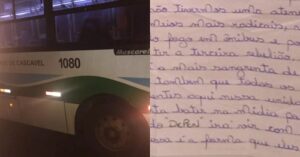 DE CASCAVEL
1080
Mascarello
não tivermos uma aten
meios mais radicais, a
o fogo em ônibus e pa
tir a terceira rebelião,
a mais sangrenta de
também que todos os
entes aqui nessa unida
ta bater na mídia pa
do "DEPEN" irá vir com
essa é a forma que eles